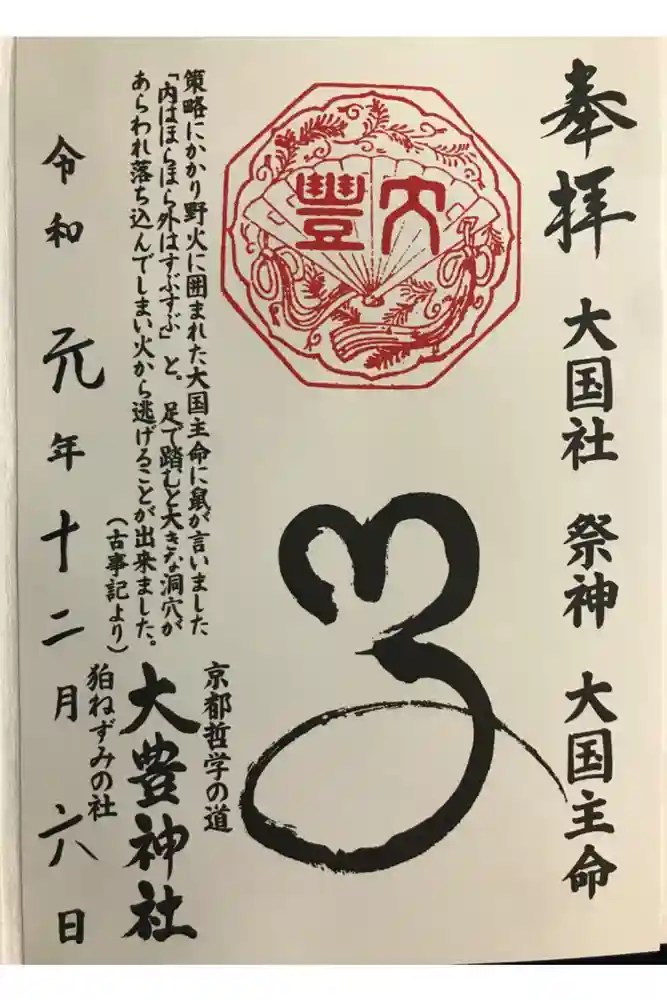 奉拝 大国社 祭神 大国主命
大豊
策略にかかり野火に囲まれた大国主命に鼠が言いました
「内はほらほら外はすぶすぶ」と。足で踏むと大きな洞穴が
あらわれ落ち込んでしまい火から逃げることが出来ました。
(古事記より)
京都哲学の道
大豊神社
狛ねずみの社
令和元年十二月六日